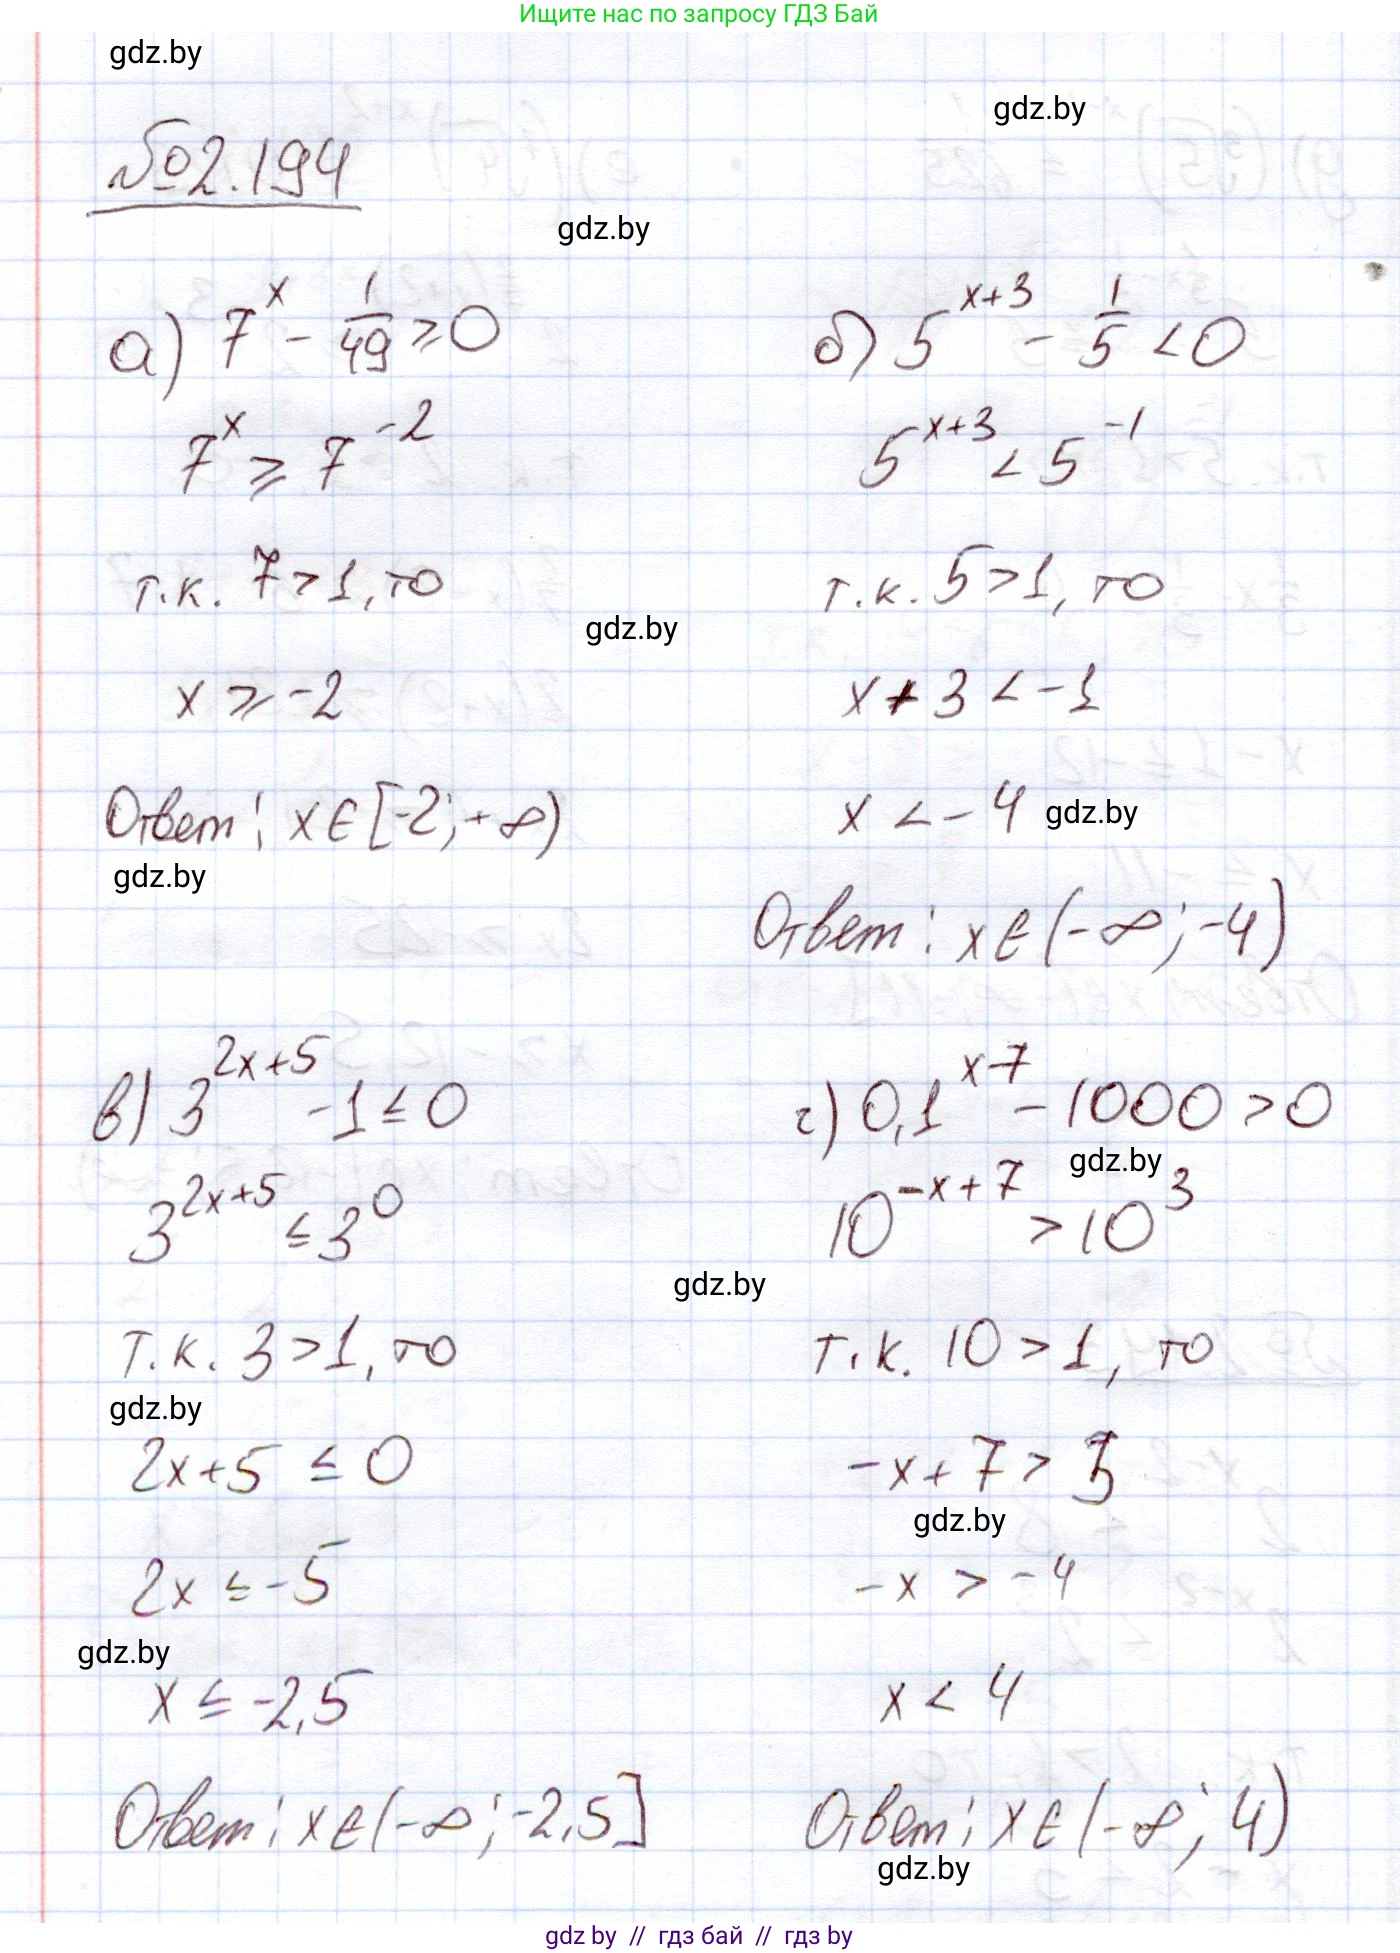 Ищите нас по запросу ГДЗ Бай
gdz.by
gdz.by
№2.194
gdz.by
а) 7^x - 1/49 ≥ 0
7^x ≥ 7^-2
т.к. 7 > 1, то
x ≥ -2
Ответ: x ∈ [-2; +∞)
gdz.by
б) 5^(x+3) - 1/5 < 0
5^(x+3) < 5^-1
т.к. 5 > 1, то
gdz.by
x + 3 < -1
x < -4
gdz.by
Ответ: x ∈ (-∞; -4)
в) 3^(2x+5) - 1 ≤ 0
3^(2x+5) ≤ 3^0
т.к. 3 > 1, то
gdz.by
2x+5 ≤ 0
2x ≤ -5
gdz.by
x ≤ -2,5
Ответ: x ∈ (-∞; -2,5]
г) 0,1^(x-7) - 1000 > 0
gdz.by
10^(-x+7) > 10^3
gdz.by
т.к. 10 > 1, то
-x + 7 > 3
gdz.by
-x > -4
x < 4
Ответ: x ∈ (-∞; 4)
gdz.by
gdz by // гдз бай // гдз by